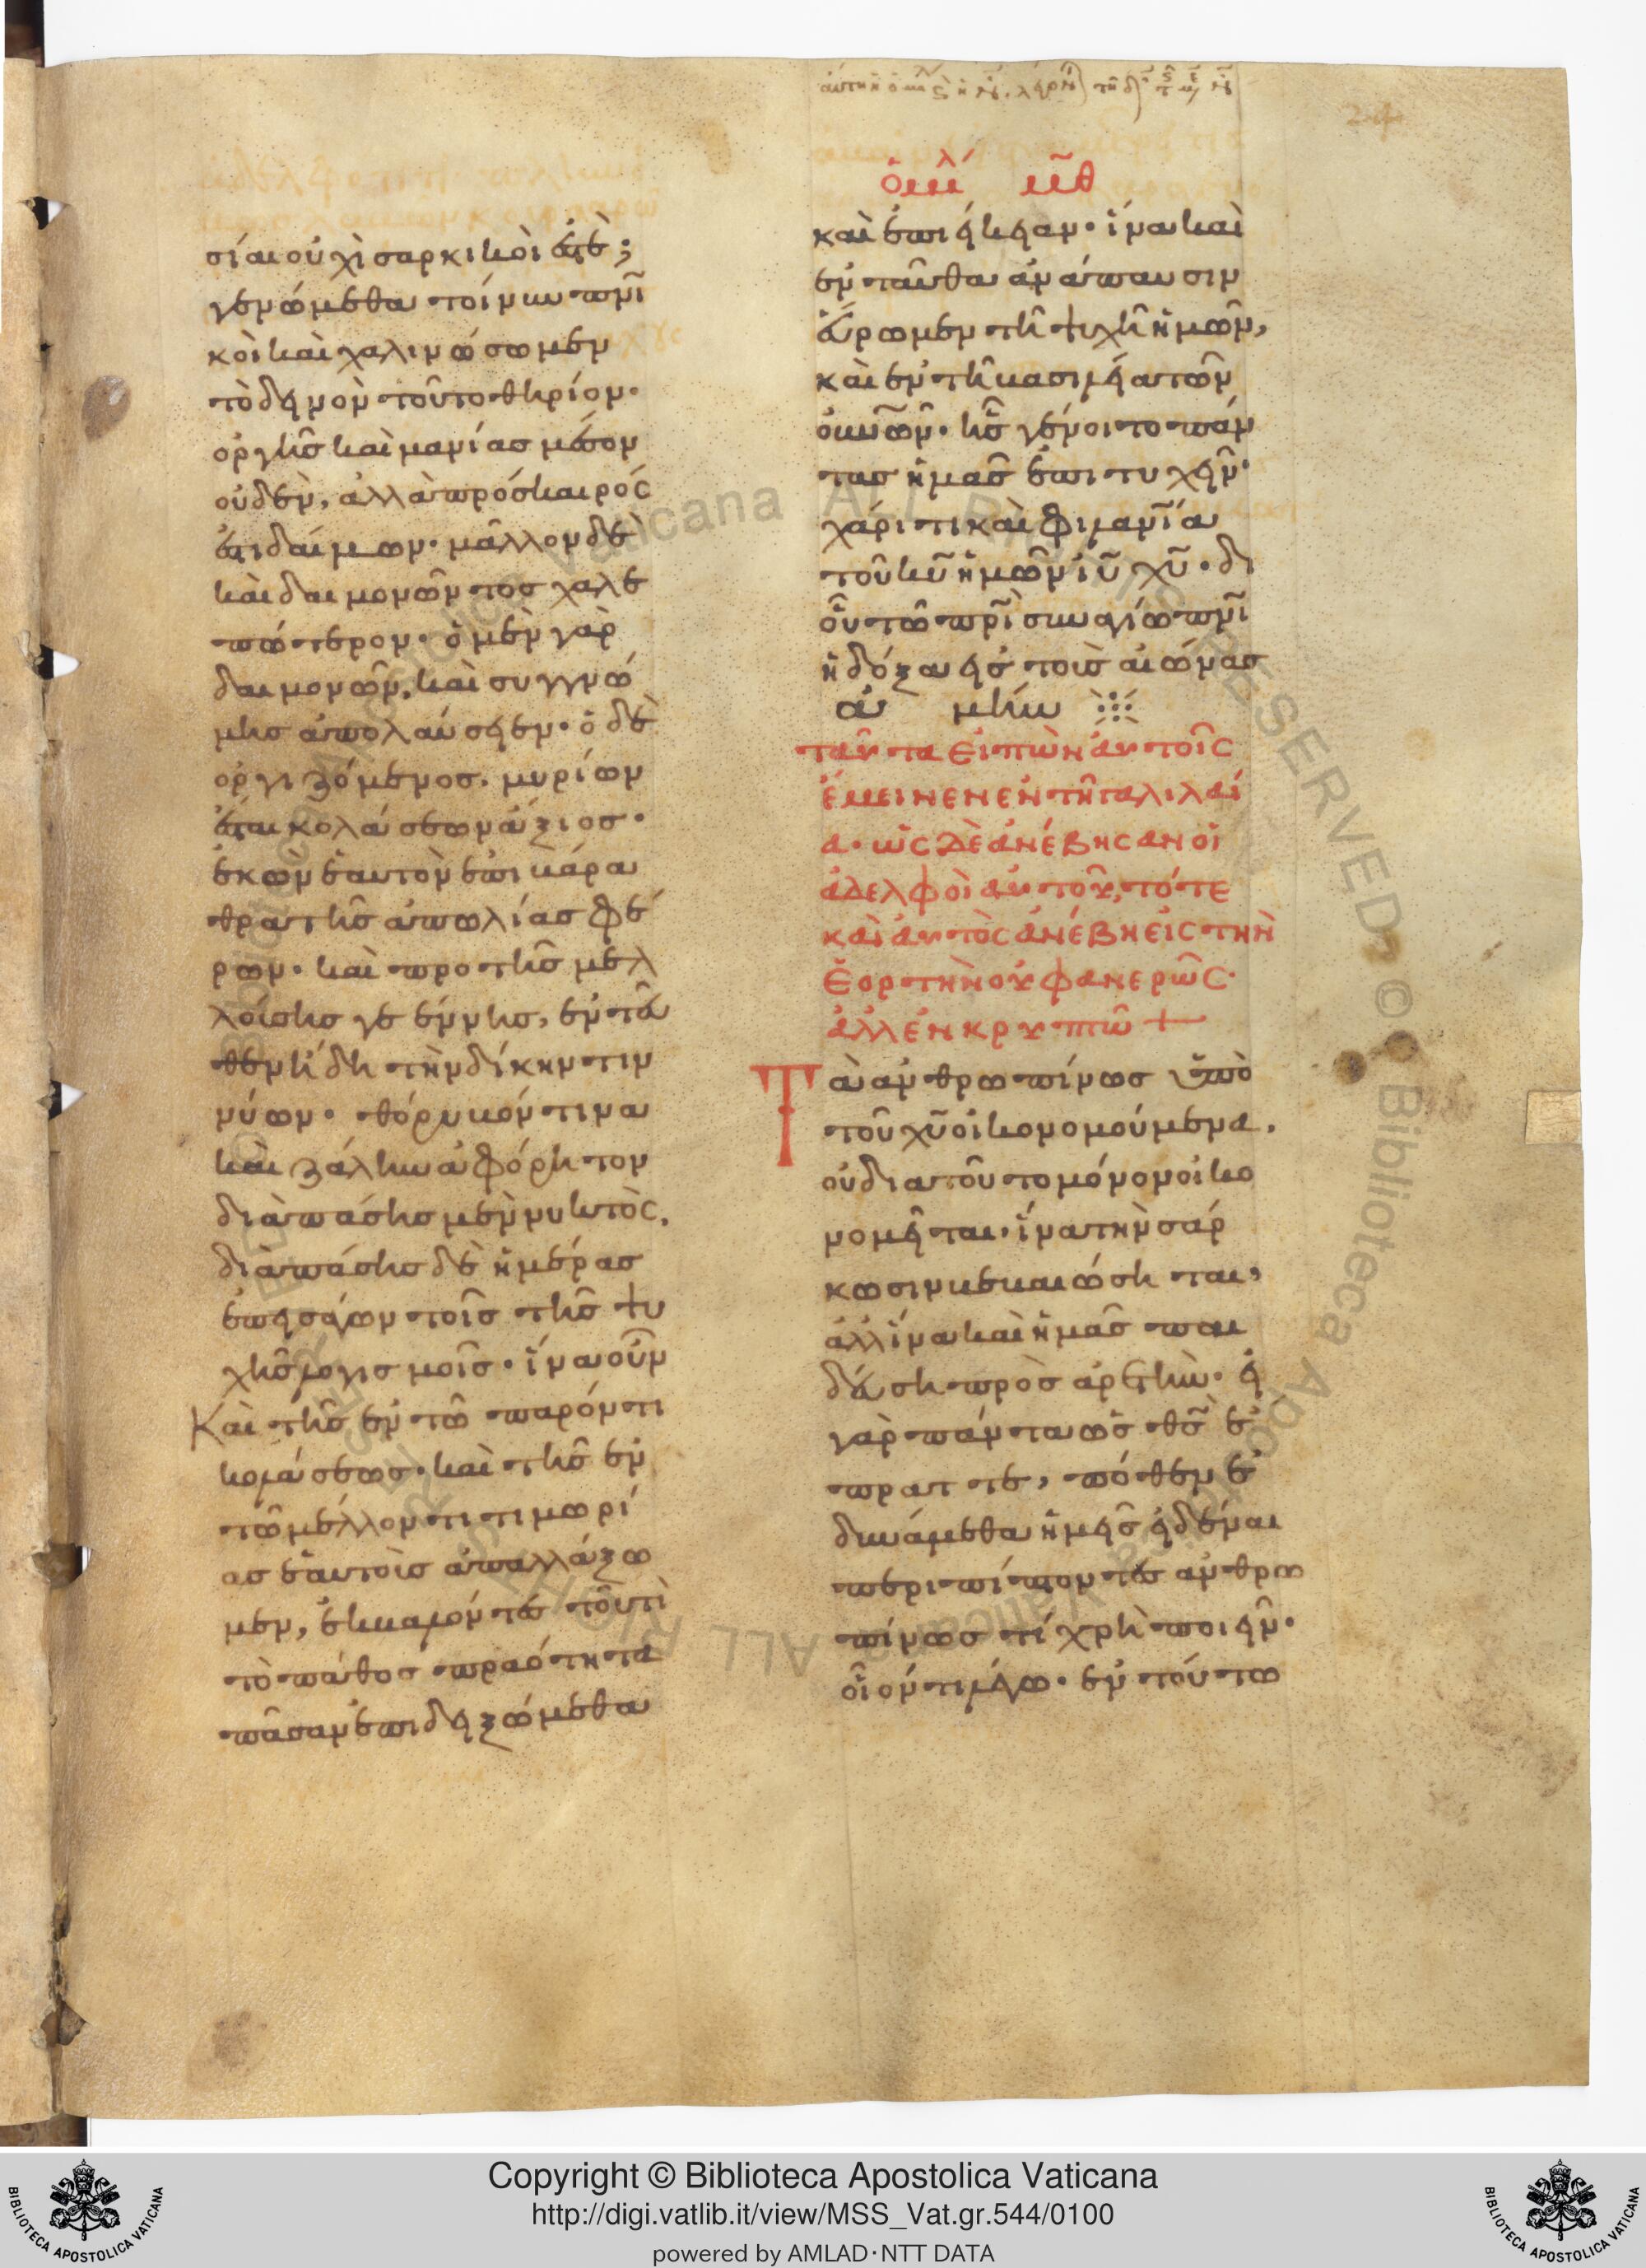 σίαι οὐχὶ σαρκικοί ἐστὲ;
γενώμεθα τοίνυν πνῑ
κοὶ καὶ χαλινώσωμεν
τὸ δεινὸν τοῦτο θηρίον·
ὀργῆς καὶ μανίας μέσον
οὐδὲν, ἀλλὰ πρόσκαιρός
ἐστι δαίμων· μᾶλλον δὲ
καὶ δαιμονῶντος χαλε
πώτερον· ὁ μὲν γὰρ
δαιμονῶν, καὶ συγγνώ
μης ἀπολαύσειεν· ὁ δὲ
ὀργιζόμενος, μυρίων
ἐσται κολάσεων ἄξιος·
ἑκὼν ἑαυτὸν ἐπὶ βάρα
θρα τῆς ἀπωλίας φέ
ρων· καὶ προ τῆς μελ
λούσης γεέννης, ἐντεῦ
θεν ἤδη τὴν δίκην τιν
νύων· θόρυβόν τινα
καὶ ζάλην ἀφόρητον
διὰ πάσης μὲν νυκτὸς,
διὰ πάσης δὲ ἡμέρας
ἐπεισάγων τοῖς τῆς ψυ
χῆς λογισμοῖς· ἵνα οὖν
καὶ τῆς ἐν τῶ παρόντι
κολάσεως· καὶ τῆς ἐν
τῶ μέλλοντι τιμωρί
ας ἑαυτοὺς ἀπαλλάξω
μεν, ἐκβαλόντες τουτὶ
τὸ πάθος πραότητα
πᾶσαν ἐπιδειξώμεθα
ὁμιλ μ̅θ
καὶ ἐπιείκειαν· ἵνα καὶ
ἐνταῦθα ἀνάπαυσιν
εὕρωμεν τῆ ψυχῆ ἡμῶν,
καὶ ἐν τῆ βασιλεία τῶν
οὐν͞ων· ἧς γένοιτο πάν
τας ἡμᾶς ἐπιτυχεῖν·
χάριτι καὶ φιλαν͞ια
τοῦ κ͞υ ἡμῶν ἰ͞υ χ͞υ· δι
οὗ τῶ πρ͞ι συν ἁγίω πν͞ι
ἡ δόξα εἰς τοὺς αἰῶνας
ἀ μήν
ταῦτα εἰπὼν αὐτοῖς
ἔμεινεν ἐν τῆ γαλιλαί
α· ὡς δὲ ἀνέβησαν οἱ
ἀδελφοὶ αὐτοῦ, τότε
καὶ αὐτὸς ἀνέβη εἰς τὴν
ἑορτὴν οὐ φανερῶς·
ἀλλ ἐν κρυπτῶ +
Τὰ ἀνθρωπίνως ὑπὸ
τοῦ χ͞υ οἰκονομούμενα,
οὐ δια τοῦτο μόνον οἰκο
νομεῖται· ἵνα τὴν σάρ
κωσιν βεβαιώσηται,
ἀλλ ἵνα καὶ ἡμᾶς παι
δεύση πρὸς ἀρετὴν· εἰ
γὰρ πάντα ὡς θ͞ς ἔ
πραττε, πόθεν ἐ
δυνάμεθα ἡμεῖς εἰδέναι
περιπίπτοντες ἀνθρω
πίνως τί χρὴ ποιεῖν·
οἷόν τι λέγω· ἐν τούτω
Copyright © Biblioteca Apostolica Vaticana
http://digi.vatlib.it/view/MSS_Vat.gr.544/0100
powered by AMLAD·NTT DATA
BIBLIOTECA APOSTOLICA VATICANA
BIBLIOTECA APOSTOLICA VATICANA